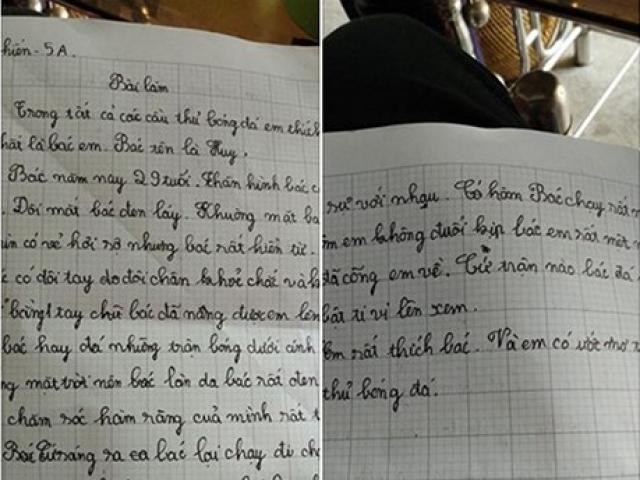 hiền - 5A.
Bài làm
Trong tất cả các cầu thủ bóng đá em thích
là bác em. Bác tên là Huy.
Bác năm nay 29 tuổi. Thân hình bác
. Đôi mắt bác đen láy. Khuông mặt
có vẻ hơi sợ nhưng bác rất hiền từ.
có đôi tay do đôi chân khoẻ chắc và
bằng 1 tay chữ bác đã nâng được em lên
bác hay đá những trận bóng dưới ánh
mặt trời nên bác làn da bác rất đen
chăm sóc hàm răng của mình rất
Bác sáng ra bác lại chạy đi
sư với nhau. Có hôm Bác chạy rất
em không đuổi kịp bác em rất mệt
đã cõng em về. Cứ trận nào bác đá
bật ti vi lên xem.
rất thích bác. Và em có ước mơ
thủ bóng đá.